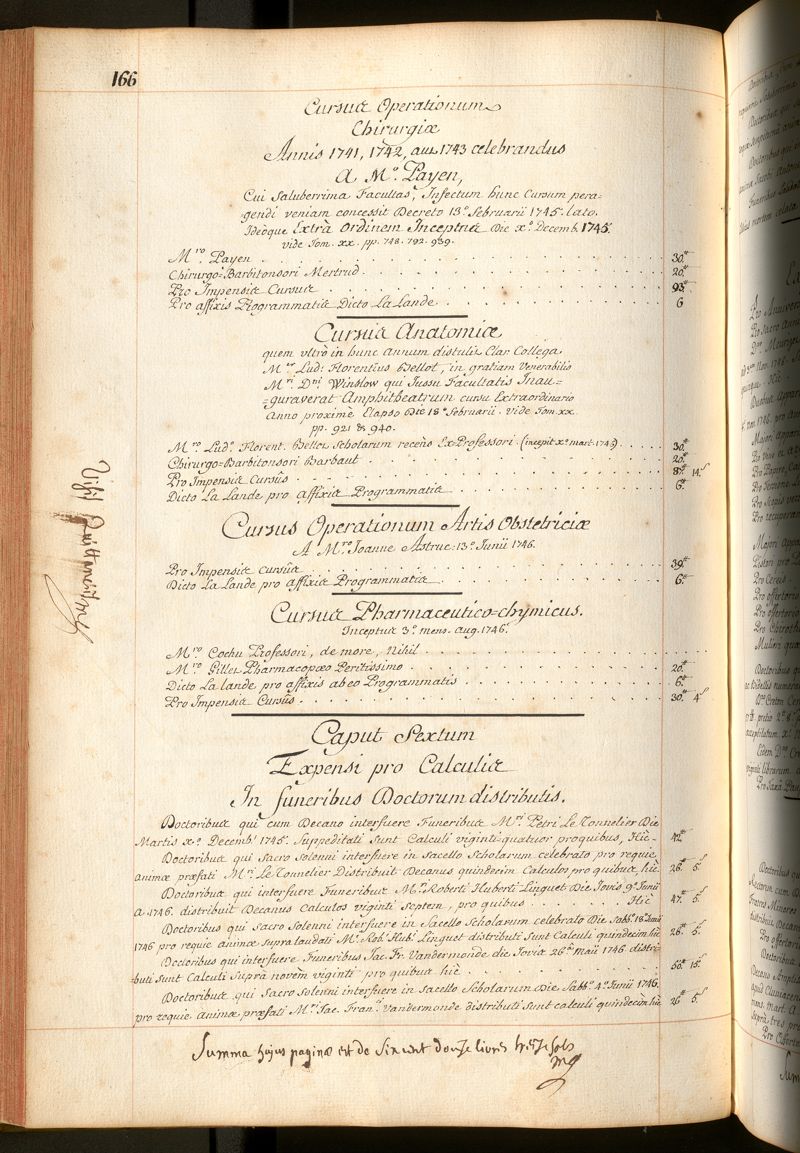 166
Cursus Operationum
Chirurgiæ
Annis 1741, 1742, aut 1743 celebrandus
A M.º Payen,
Cui Saluberrima Facultas, Infectum hunc Cursum pera-
gendi veniam concessit Decreto 13.º februarii 1745. lato.
Ideoque Extrà Ordinem Inceptus Die x.ª Decemb. 1745.
vide Tom. xx. pp. 748. 792. 939.
M.ro Payen . . . 30.tt
Chirurgo-Barbitonsori Mertrud . . . 20.tt
Pro Impensis Cursus . . . 93.tt
Pro affixis Programmatis Dicto La Lande . . . 6
Cursus Anatomicus
quem vltrò in hunc annum distulit Clar. Collega
M.er Lud: Florentius Bellot, in gratiam Venerabilis
M.ri D.ni Winslow qui Jussu Facultatis Inau=
=guraverat Amphitheatrum cursu Extraordinario
Anno proximè Elapso Die 18.ª februarii. Vide Tom. xx.
pp. 921 & 940.
M.ro Lud.º Florent. Bellot Scholarum recèns Ex-Professori. (incepit x.ª mart. 1745) . . . 30.tt
Chirurgo-Barbitonsori Barbaut . . . 20.tt
Pro Impensis Cursûs . . . 8.tt 14.s
Dicto La Lande pro affixis Programmatis . . . 6.tt
Cursus Operationum Artis Obstetriciæ
A M.ro Joanne Astruc. 13.ª Junii 1746.
Pro Impensis cursûs . . . 39.tt
Dicto La Lande pro affixis Programmatis . . . 6.tt
Cursus Pharmaceutico-chymicus.
Inceptus 3.ª mens. aug. 1746.
M.ro Cochu Professori, de more, Nihil . . .
M.ro Gillet Pharmacopæo Peritissimo . . . 20.tt
Dicto La lande pro affixis ab eo Programmatis . . . 6.tt
Pro Impensis Cursûs . . . 30.tt 4.s
Visis Quittanciis
Caput Sextum
Expensi pro Calculis
In funeribus Doctorum distributis.
Doctoribus qui cum Decano interfuere Funeribus M.ri Petri Le Tonnelier Die
Martis x.ª Decemb.ris 1745. Suppeditati Sunt Calculi viginti-quatuor pro quibus, Hîc . . . 42.tt
Doctoribus qui Sacro Solenni interfuere in Sacello Scholarum celebrato pro requie
animæ præfati M.ri Le Tonnelier Distribuit Decanus quindecim Calculos pro quibus, hîc . . . 26.tt 5.s
Doctoribus qui interfuere Funeribus M.ri Roberti Huberti Linguet Die Jovis 9.ª Junii
A. 1746. distribuit Decanus Calculos viginti Septem, pro quibus . . . Hîc . . . 47.tt 5.s
Doctoribus qui Sacro Solenni interfuere in Sacello Scholarum celebrato Die Sabb.i 18.ª Junii
1746 pro requie animæ supra laudati M.ri Rob.ti Hub.ti Linguet distributi Sunt Calculi quindecim hîc . . . 26.tt 5.s
Doctoribus qui interfuere Funeribus Jac. Fr. Vandermonde die Jovis 26.ª maii 1746 distri-
buti Sunt Calculi Suprà novèm viginti pro quibus hîc . . . 50.tt 15.s
Doctoribus qui Sacro Solenni interfuere in Sacello Scholarum Die Sabb.i 4.ª Junii 1746.
pro requie Animæ præfati M.ri Jac. Fran.ci Vandermonde distributi Sunt calculi quindecim hîc . . . 26.tt 5.s
Summa hujus paginæ est de Six cent douze livres treize sols